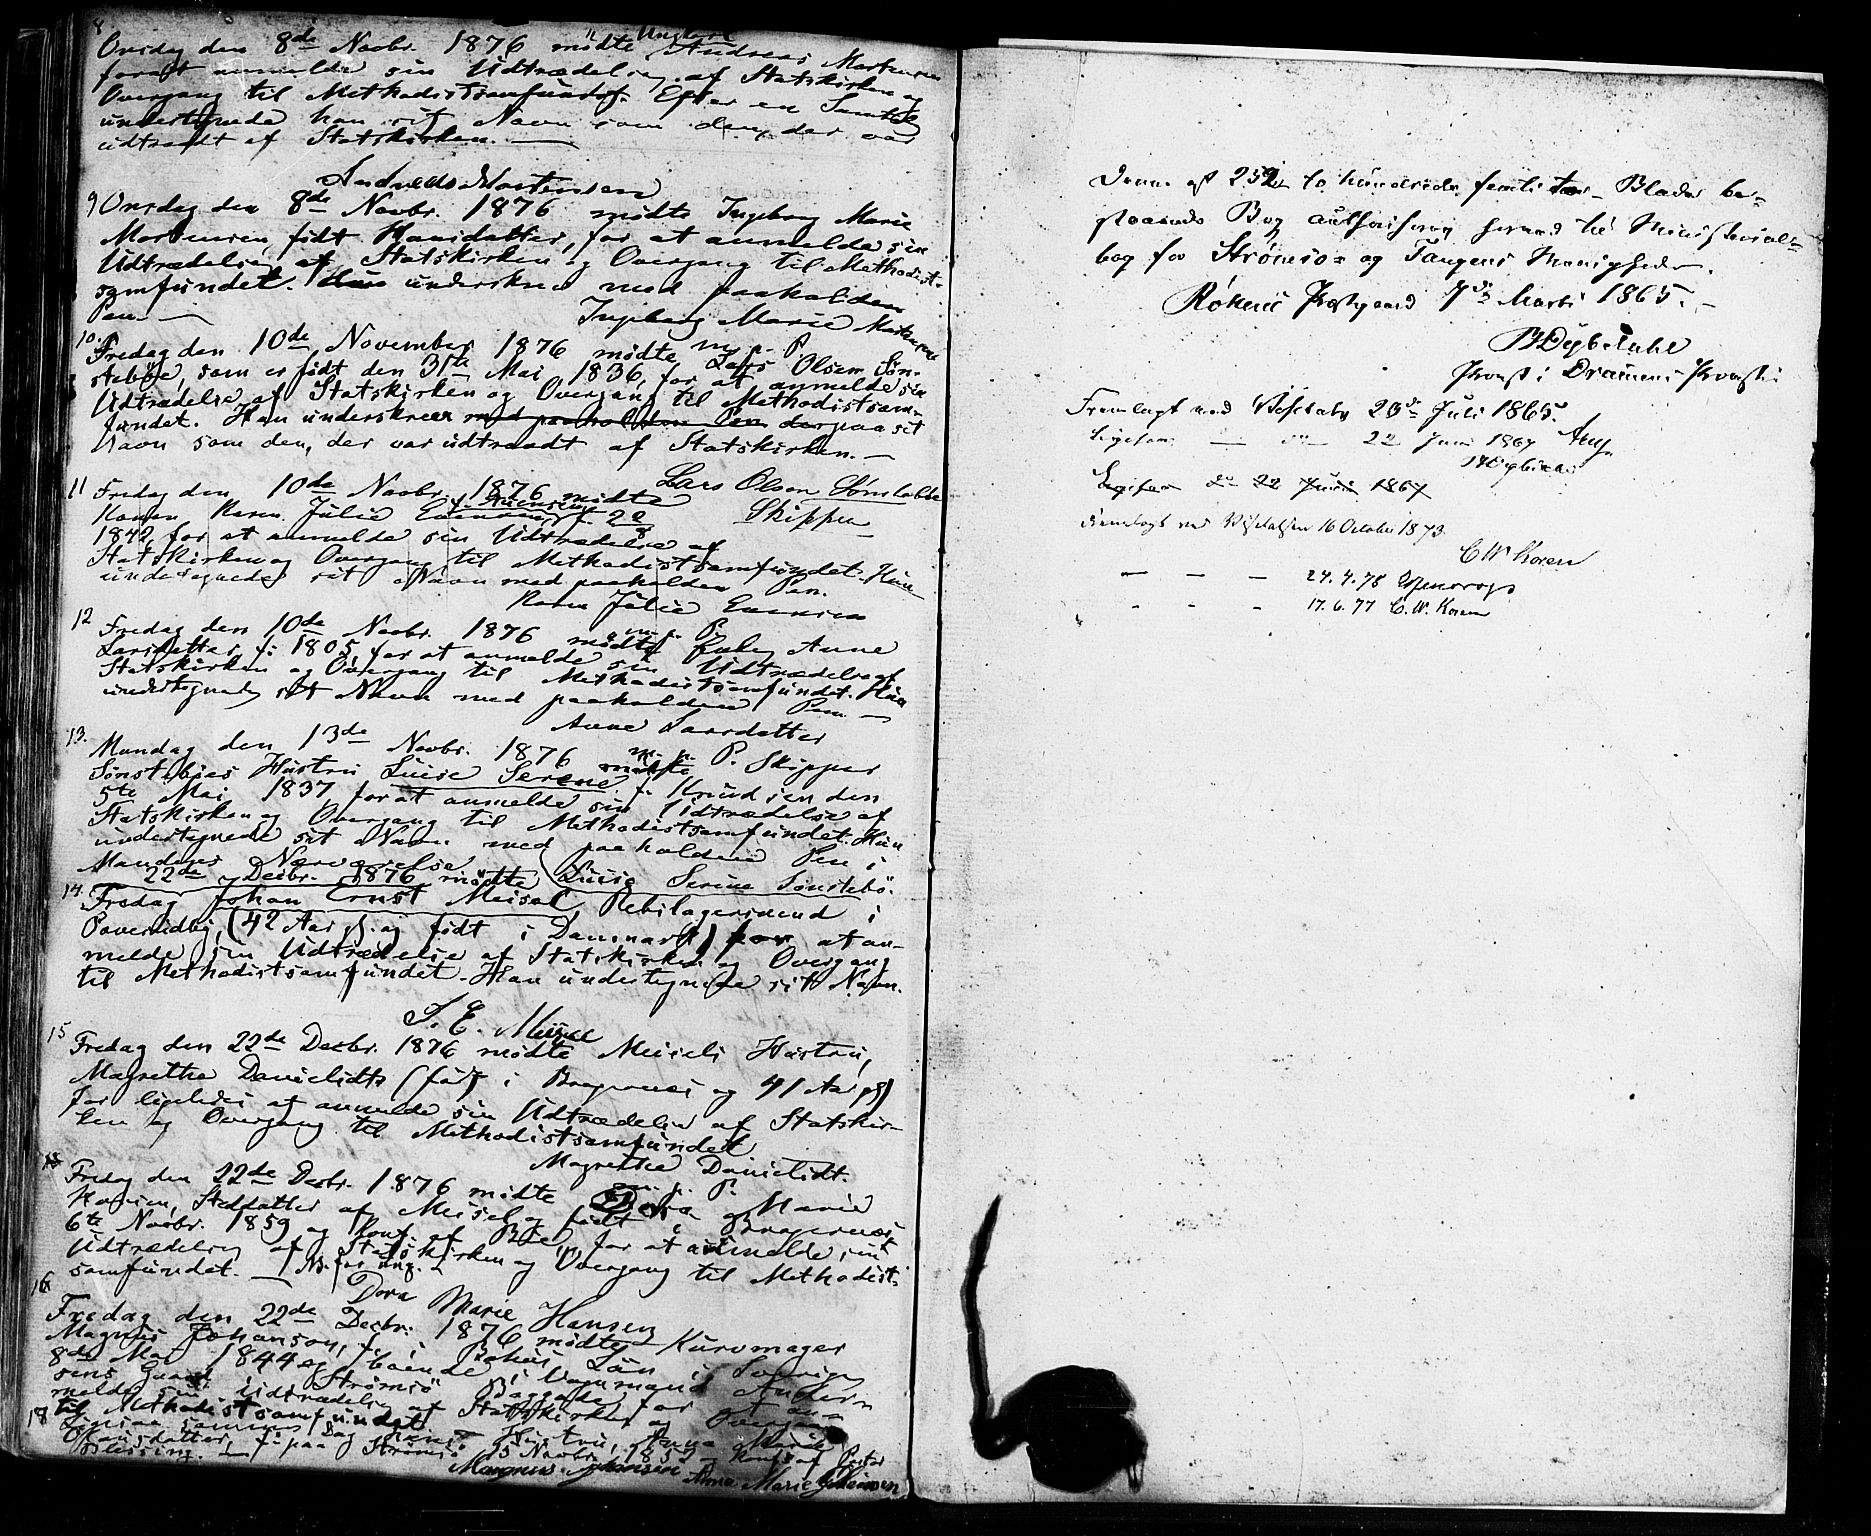 8
Onsdag den 8de Novbr. 1876 mødte Ungkarl Andreas Mortensen
foratt anmelde sin Udtrædelse af Statskirken og
Overgang til Methodistsamfundet. Efter en Samtale
undertegnede han sit Navn som den, der var
udtraadt af Statskirken. —
Andreas Mortensen
9 Onsdag den 8de Novbr. 1876 mødte Ingeborg Marie
Mortensen, født Hansdatter, for at anmelde sin
Udtrædelse af Statskirken og Overgang til Methodist-
samfundet. Hun underskrev med paaholden
Pen. —
Ingeborg Marie Mortensen
m. p. P.
10. Fredag den 10de November 1876 mødte Lars Olsen Søn-
stebøe, som er født den 31te Mai 1836, for at anmelde sin
Udtrædelse af Statskirken og Overgang til Methodistsam-
fundet. Han underskrev med paaholden Pen derpaa sit
Navn som den, der var udtraadt af Statskirken. —
Lars Olsen Sønstebøe
Skipper
11 Fredag den 10de Novbr. 1876 mødte
Konen Karen Julie Evensen f.
1842, for at anmelde sin Udtrædelse af
Statskirken og Overgang til Methodistsamfundet. Hun
undertegnede sit Navn med paaholden Pen.
Karen Julie Evensen
m. p. P.
12 Fredag den 10de Novbr. 1876 mødte Enke Anne
Larsdatter, f. 1805, for at anmelde sin Udtrædelse af
Statskirken og Overgang til Methodistsamfundet. Hun
undertegnede sit Navn med paaholden Pen —
Anne Larsdatter
m. p. P.
13. Mandag den 13de Novbr. 1876 mødte Skipper
Sønstebøes Hustru Luise Serene f. Knudsen den
5te Mai 1837 for at anmelde sin Udtrædelse af
Statskirken og Overgang til Methodistsamfundet. Hun
undertegnede sit Navn med paaholden Pen i
Mandens Nærværelse
Luise Serine Sønstebø.
14. Fredag 22de Decbr. 1876 mødte
Johan Ernst Meisel, Rebslagersvend i
(42 Aar gl. og født i Danmark) for at an-
melde sin Udtrædelse af Statskirken og Overgang
til Methodistsamfundet. Han undertegnede sit Navn.
J. E. Meisel
15 Fredag den 22de Decbr. 1876 mødte Meisels Hustru,
Magrethe Danielidt (født i Bragernes og 41 Aar gl)
for ligeledes at anmelde sin Udtrædelse af Statskir-
ken og Overgang til Methodistsamfundet
Magrethe Danielidt.
m. p. P.
Fredag den 22de Decbr. 1876 mødte Dora Marie
Hansen, Steddatter af Meisel og født i Bragernes
6te Novbr. 1859 og Konf. af for at anmelde sin
Udtrædelse af Statskirken og Overgang til Methodist-
samfundet. — NB. for ung.
Dora Marie Hansen
16 Fredag den 22de Decbr. 1876 mødte Kurvmager
Magnus Johanson, f. i Län i Sverige
8de Mai 1844 og boende i Vognmand Ander-
sens Gaard Strømsø Baggade, for at an-
melde sin Udtrædelse af Statskirken og Overgang
til Methodistsamfundet.
18 samme Dag Hustru, Anna Marie
f. paa Strømsø 15 Novbr. og Konf. af Pastor
Magnus Johansen Anna Marie Johansen
Denne af 252 to hundrede femti to Blade be-
staaende Bog authoriseres herved til Ministerial-
bog for Strømsø- og Tangens Menigheder.
Røkens Præstgaard 7de Marts 1865. —
Provst i Dramens Provsti
Fremlagt ved Visitats 23de Juli 1865. Arup
Ligesaa — — 22 Juni 1867
Ligesaa d. 22 Juni 1867
Fremlagt ved Visitatsen 16 October 1873.
C W Koren
— — — 24.4.75
- - - 17.6.77 C. W. Koren